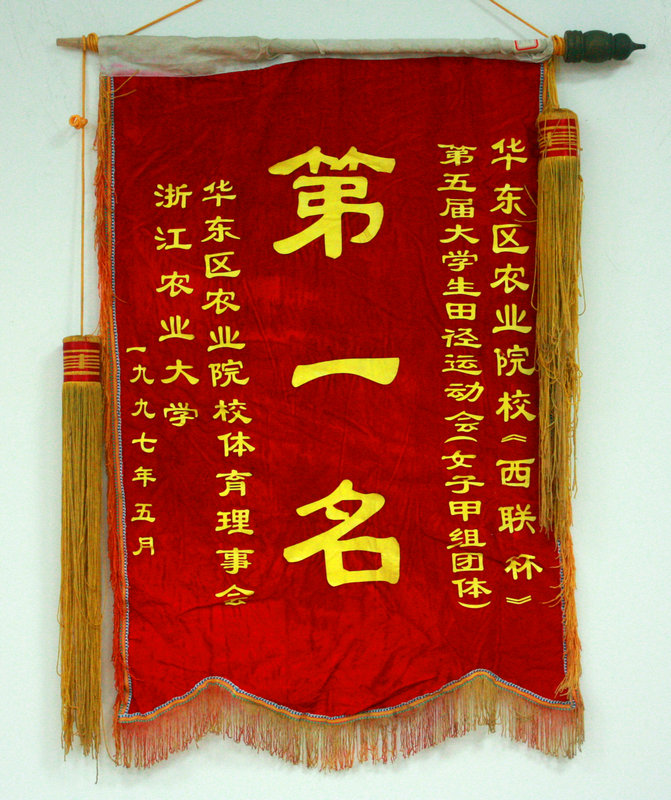 华东区农业院校《西联杯》
第五届大学生田径运动会(女子甲组团体)
第一名
华东区农业院校体育理事会
浙江农业大学
一九九七年五月